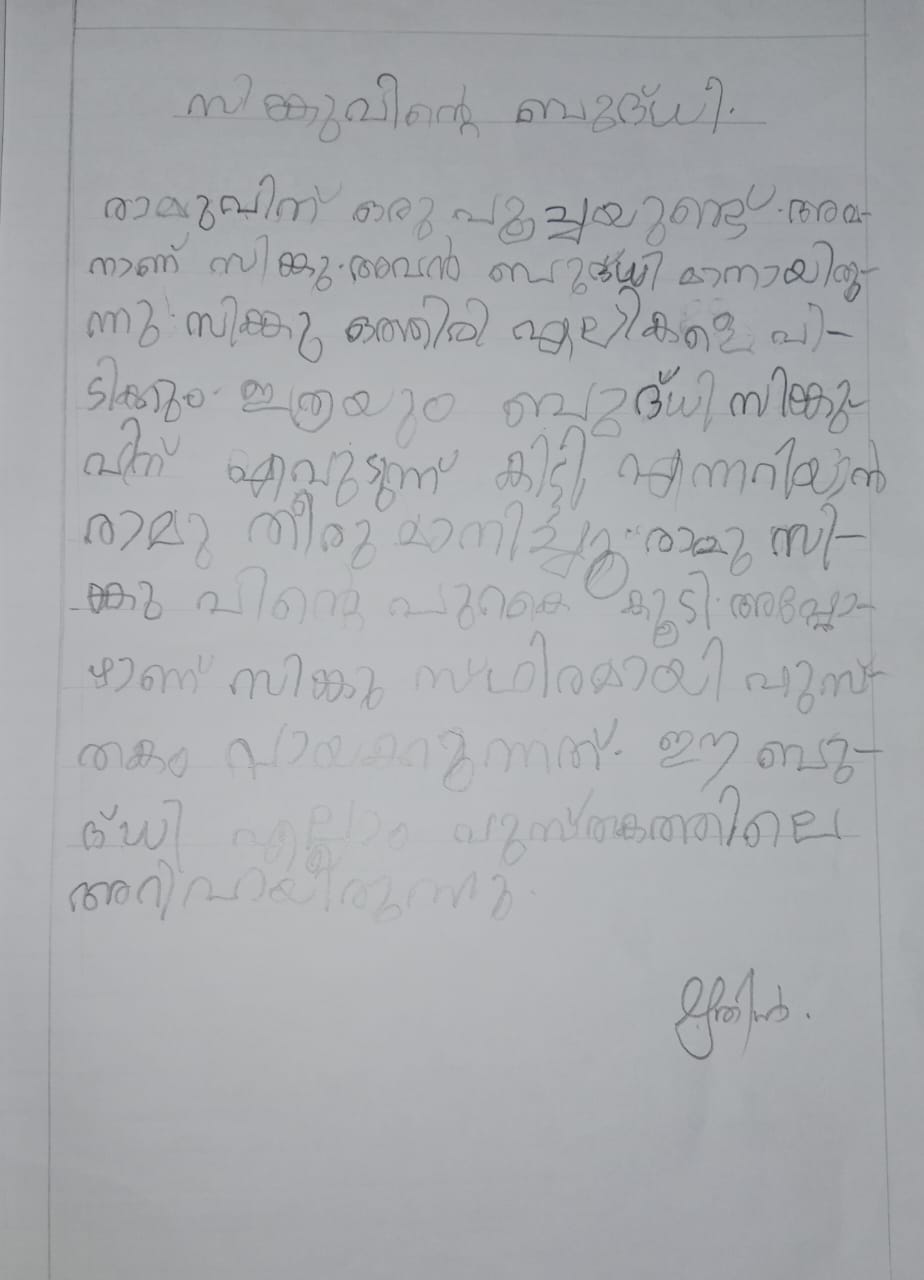 സിങ്കുവിന്റെ ബുദ്ധി.
രാമുവിന് ഒരു പൂച്ചയുണ്ട്. അവ-
നാണ് സിങ്കു. അവൻ ബുദ്ധി മാനായിരു-
ന്നു. സിങ്കു ഒത്തിരി എലികളെ പി-
ടിക്കും. ഇത്രയും ബുദ്ധി സിങ്കു-
വിന് എവുടുന്ന് കിട്ടി എന്നറിയാൻ
രാമു തീരുമാനിച്ചു. രാമു സി-
ങ്കു വിന്റെ പുറകെ കൂടി. അപ്പോ-
ഴാണ് സിങ്കു സ്ഥിരമായി പുസ്-
തകം വായക്കുന്നത്. ഈ ബു-
ദ്ധി എല്ലാം പുസ്തകത്തിലെ
അറിവായിരുന്നു.